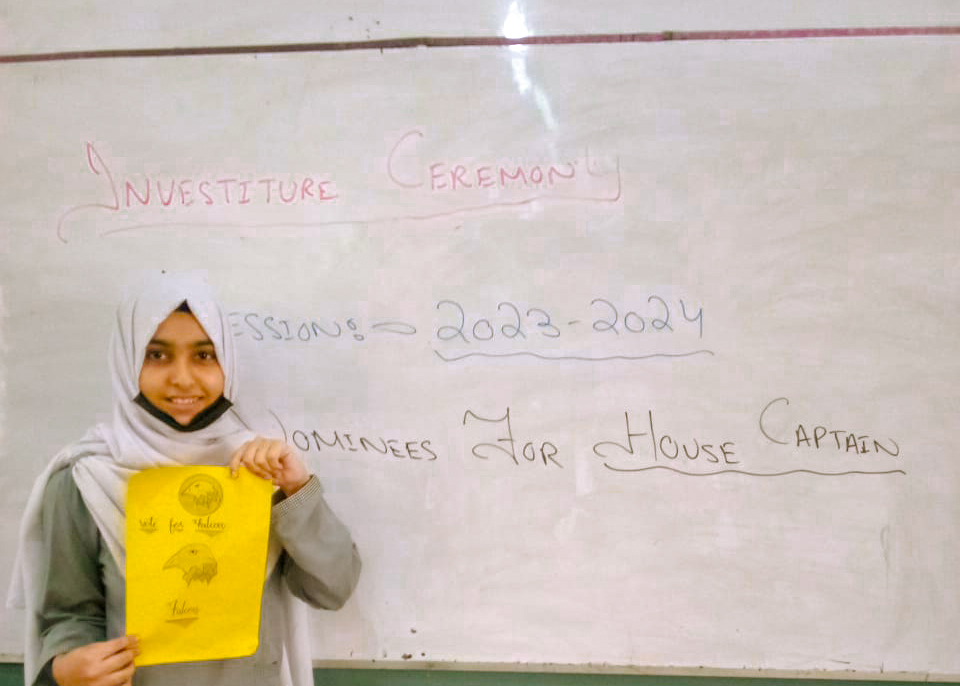 INVESTITURE CEREMONY
ESSION:- 2023-2024
OMINEES FOR HOUSE CAPTAIN
Vote for Falcon
Falcon